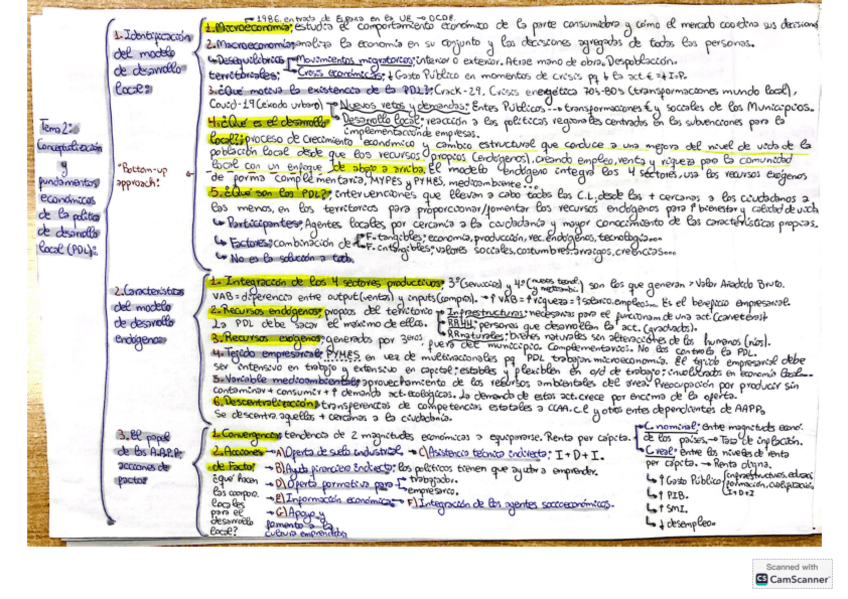 Tema 2:
Conceptualización
y
fundamentos
económicos
de la política
de desarrollo
local (PDL):
1. Identificación
del modelo
de desarrollo
local:
"Bottom-up
approach:
1986. entrada de España en la UE → OCDE.
1. Microeconomía: estudia el comportamiento económico de la parte consumidora y cómo el mercado coordina sus decisiones
2. Macroeconomía: analiza la economía en su conjunto y las decisiones agregadas de todas las personas.
↳ Desequilibrios territoriales:
Movimientos migratorios: interior o exterior. Atrae mano de obra. Despoblación.
Crisis económicas: ↓ Gasto Público en momentos de crisis pq ↓ la act. € = ↓ I.P.
3. ¿Qué motiva la existencia de la PDL?: Crack-29, Crisis energética 70s-80s (transformaciones mundo local),
Covid-19 (éxodo urbano) → Nuevos retos y demandas: Entes Públicos → transformaciones € y sociales de los Municipios.
Desarrollo local: reacción a las políticas regionales centradas en las subvenciones para la
implementación de empresas.
4. ¿Qué es el desarrollo
local?: proceso de crecimiento económico y cambio estructural que conduce a una mejora del nivel de vida de la
población local desde que los recursos propios (endógenos), creando empleo, renta y riqueza para la comunidad
local con un enfoque de abajo a arriba. El modelo endógeno integra los 4 sectores, usa los recursos exógenos
de forma complementaria, MYPES y PYMES, medioambiente...
5. ¿Qué son las PDL?: intervenciones que llevan a cabo todas las C.L, desde las + cercanas a los ciudadanos a
las menos, en los territorios para proporcionar/fomentar los recursos endógenos para ↑ bienestar y calidad de vida
↳ Participantes: Agentes locales por cercanía a la ciudadanía y mayor conocimiento de las características propias.
↳ Factores: combinación de
F. tangibles: economía, producción, rec. endógenos, tecnología...
F. intangibles: valores sociales, costumbres, arraigos, creencias...
↳ No es la solución a todo.
2. Características
del modelo
de desarrollo
endógeno:
1. Integración de los 4 sectores productivos: 3º (servicios) y 4º (nuevas tecnol. y medioamb.) son los que generan > Valor Añadido Bruto.
VAB = diferencia entre output (ventas) y inputs (compras). → ↑ VAB = ↑ riqueza = ↑ salario, empleo... Es el beneficio empresarial.
2. Recursos endógenos: propios del territorio
La PDL debe "sacar" el máximo de ellos.
Infraestructuras: necesarias para el funcionam. de una act. (carretera)
RRHH: personas que desarrollan la act. (graduados).
RRnaturales: bienes naturales sin alteraciones de los humanos (ríos).
3. Recursos exógenos: generados por 3eros, fuera del municipio. Complementarios. No los controla la PDL.
4. Tejido empresarial: PYMES en vez de multinacionales pq PDL trabajan microeconomía. El tejido empresarial debe
ser intensivo en trabajo y extensivo en capital: estables y flexibles en o/d de trabajo: involucradas en economía local...
5. Variable medioambiental: aprovechamiento de los recursos ambientales del área. Preocupación por producir sin
contaminar + consumir + ↑ demanda act. ecológicas. La demanda de estas act. crece por encima de la oferta.
6. Descentralización: transferencias de competencias estatales a CCAA, C.L y otros entes dependientes de AAPP.
Se descentra aquellas + cercanas a la ciudadanía.
3. El papel
de las A.A.P.P:
acciones de
facto:
1. Convergencia: tendencia de 2 magnitudes económicas a equipararse. Renta per cápita.
C. nominal: entre magnitudes econó.
de los países. → Tasa de inflación.
C. real: entre los niveles de renta
per cápita. → Renta digna.
↳ ↑ Gasto Público (infraestructuras, educación, formación, cualificación, I+D+I)
↳ ↑ PIB.
↳ ↑ SMI.
↳ ↓ desempleo.
2. Acciones
de Facto:
¿qué hacen
las corpo.
locales
para el
desarrollo
local?
A) Oferta de suelo industrial.
B) Ayuda financiera indirecta: los políticos tienen que ayudar a emprender.
C) Asistencia técnica indirecta: I + D + I.
D) Oferta formativa para trabajador.
empresario.
E) Información económica.
F) Integración de los agentes socioeconómicos.
G) Apoyo y
fomento a la
cultura emprendedora
Scanned with
CS CamScanner